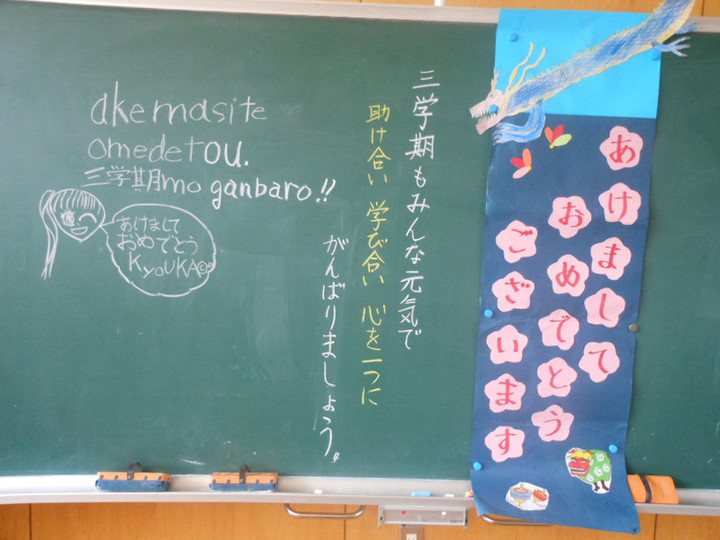 akemasite
omedetou.
三学期mo ganbaro!!
あけまして
おめでとう
KyoUKA©
三学期もみんな元気で
助け合い 学び合い 心を一つに
がんばりましょう。
あけまして
おめでとう
ございます